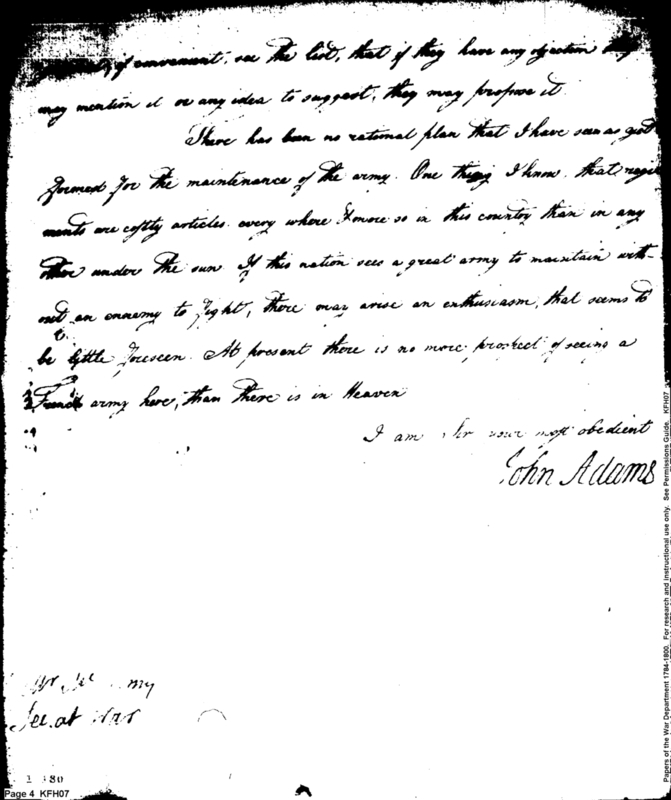 if convenient, see the list, that if they have any objection they
may mention it or any idea to suggest, they may propose it
There has been no rational plan that I have seen as yet
formed for the maintenance of the army. One thing I know, that regi-
ments are costly articles every where & more so in this country than in any
other under the sun. If this nation sees a great army to maintain with-
out an ennemy to fight, there may arise an enthusiasm, that seems to
be little foreseen. At present there is no more prospect of seeing a
French army here, than there is in Heaven
I am Sir your most obedient
John Adams
Mr
Sec. at War
Page 4 KFH07
Papers of the War Department 1784-1800. For research and instructional use only. See Permissions Guide. KFH07